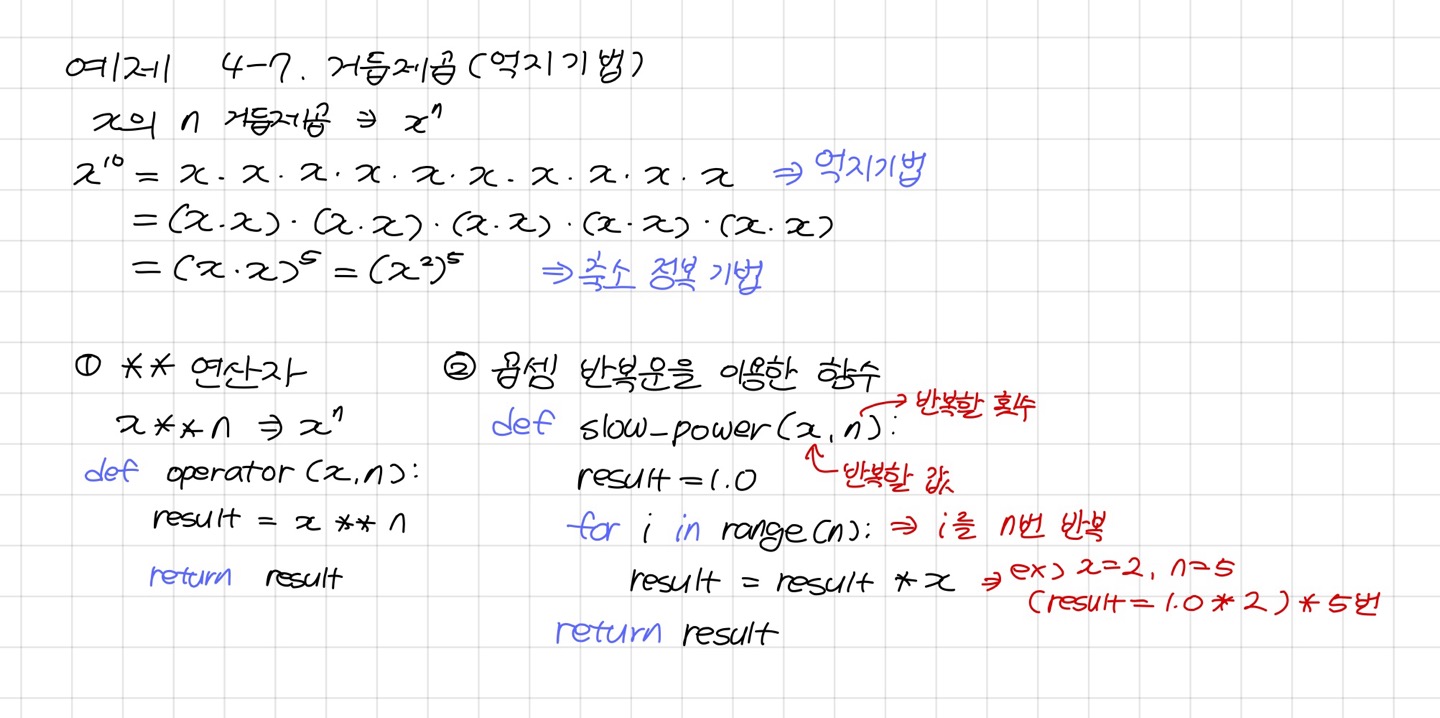 예제 4-7. 거듭제곱(억지기법)
x의 n 거듭제곱 ⇒ xⁿ
x¹⁰ = x · x · x · x · x · x · x · x · x · x ⇒ 억지기법
= (x·x) · (x·x) · (x·x) · (x·x) · (x·x)
= (x·x)⁵ = (x²)⁵ ⇒ 축소 정복 기법
① ** 연산자
x**n ⇒ xⁿ
def operator (x,n):
result = x ** n
return result
② 곱셈 반복문을 이용한 함수
def slow_power(x,n): → 반복할 횟수
result = 1.0 반복할 값
for i in range(n): ⇒ i를 n번 반복
result = result * x ⇒ ex) x=2, n=5
(result = 1.0 * 2) * 5번
return result